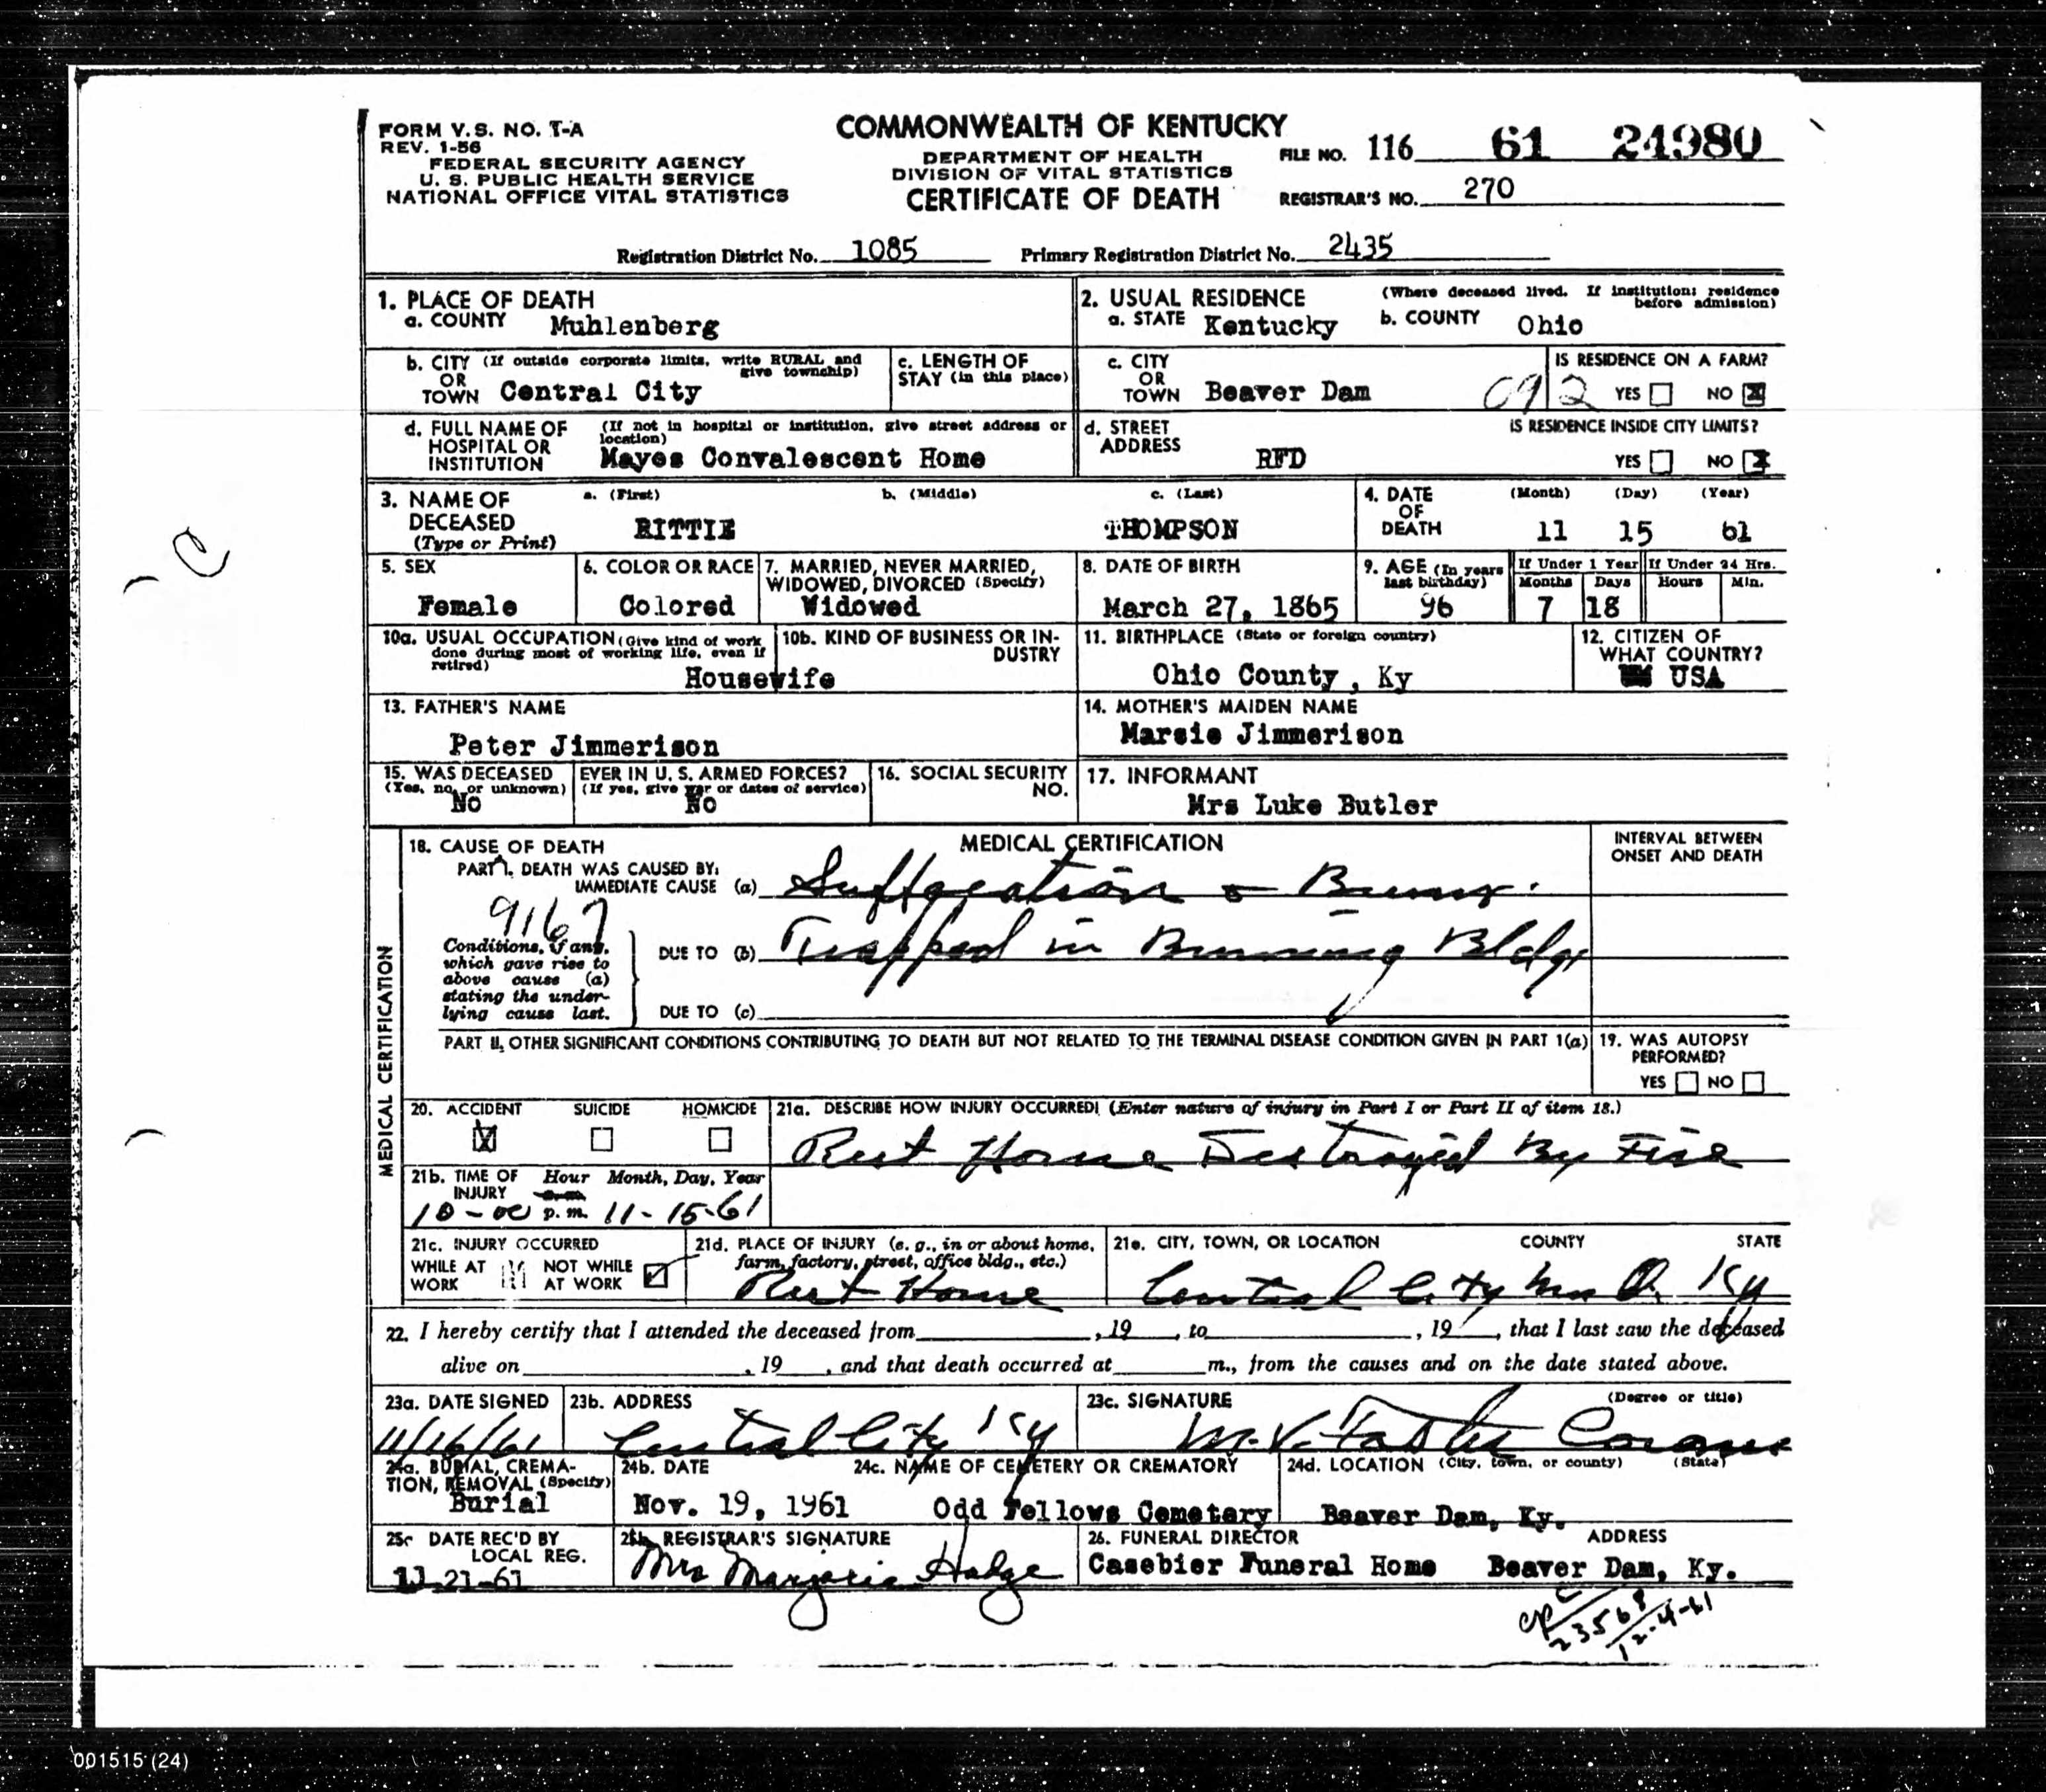 FORM V.S. NO. 1-A
REV. 1-56
FEDERAL SECURITY AGENCY
U. S. PUBLIC HEALTH SERVICE
NATIONAL OFFICE VITAL STATISTICS
COMMONWEALTH OF KENTUCKY
DEPARTMENT OF HEALTH
DIVISION OF VITAL STATISTICS
CERTIFICATE OF DEATH
FILE NO. 116 61 24980
REGISTRAR'S NO. 270
Registration District No. 1085 Primary Registration District No. 2435
1. PLACE OF DEATH
a. COUNTY Muhlenberg
2. USUAL RESIDENCE (Where deceased lived. If institution: residence before admission)
a. STATE Kentucky b. COUNTY Ohio
b. CITY (If outside corporate limits, write RURAL and give township)
OR
TOWN Central City
c. LENGTH OF
STAY (in this place)
c. CITY
OR
TOWN Beaver Dam
092
IS RESIDENCE ON A FARM?
YES NO X
d. FULL NAME OF (If not in hospital or institution, give street address or location)
HOSPITAL OR
INSTITUTION Mayes Convalescent Home
d. STREET
ADDRESS RFD
IS RESIDENCE INSIDE CITY LIMITS?
YES NO X
3. NAME OF
DECEASED
(Type or Print)
a. (First) b. (Middle) c. (Last)
RITTIE THOMPSON
4. DATE
OF
DEATH
(Month) (Day) (Year)
11 15 61
5. SEX
Female
6. COLOR OR RACE
Colored
7. MARRIED, NEVER MARRIED,
WIDOWED, DIVORCED (Specify)
Widowed
8. DATE OF BIRTH
March 27, 1865
9. AGE (In years
last birthday)
96
If Under 1 Year If Under 24 Hrs.
Months Days Hours Min.
7 18
10a. USUAL OCCUPATION (Give kind of work
done during most of working life, even if
retired)
Housewife
10b. KIND OF BUSINESS OR IN-
DUSTRY
11. BIRTHPLACE (State or foreign country)
Ohio County, Ky
12. CITIZEN OF
WHAT COUNTRY?
USA
13. FATHER'S NAME
Peter Jimmerison
14. MOTHER'S MAIDEN NAME
Marsie Jimmerison
15. WAS DECEASED EVER IN U. S. ARMED FORCES?
(Yes, no, or unknown) (If yes, give war or dates of service)
No No
16. SOCIAL SECURITY
NO.
17. INFORMANT
Mrs Luke Butler
MEDICAL CERTIFICATION
18. CAUSE OF DEATH MEDICAL CERTIFICATION
INTERVAL BETWEEN
ONSET AND DEATH
PART I. DEATH WAS CAUSED BY:
IMMEDIATE CAUSE (a) Suffocation & Burns.
9167
Conditions, if any,
which gave rise to
above cause (a)
stating the under-
lying cause last.
DUE TO (b) Trapped in Burning Bldg
DUE TO (c)
PART II. OTHER SIGNIFICANT CONDITIONS CONTRIBUTING TO DEATH BUT NOT RELATED TO THE TERMINAL DISEASE CONDITION GIVEN IN PART 1(a)
19. WAS AUTOPSY
PERFORMED?
YES NO
20. ACCIDENT SUICIDE HOMICIDE
X
21a. DESCRIBE HOW INJURY OCCURRED! (Enter nature of injury in Part I or Part II of item 18.)
Rest Home Destroyed By Fire
21b. TIME OF Hour Month, Day, Year
INJURY a.m.
10-00 p.m. 11-15-61
21c. INJURY OCCURRED
WHILE AT NOT WHILE
WORK AT WORK
21d. PLACE OF INJURY (e. g., in or about home,
farm, factory, street, office bldg., etc.)
Rest Home
21e. CITY, TOWN, OR LOCATION COUNTY STATE
Central City Ky
22. I hereby certify that I attended the deceased from , 19 , to , 19 , that I last saw the deceased
alive on , 19 , and that death occurred at m., from the causes and on the date stated above.
23a. DATE SIGNED
11/16/61
23b. ADDRESS
Central City Ky
23c. SIGNATURE (Degree or title)
M. V. Coroner
24a. BURIAL, CREMA-
TION, REMOVAL (Specify)
Burial
24b. DATE
Nov. 19, 1961
24c. NAME OF CEMETERY OR CREMATORY
Odd Fellows Cemetery
24d. LOCATION (City, town, or county) (State)
Beaver Dam, Ky.
25c DATE REC'D BY
LOCAL REG.
11-21-61
25b. REGISTRAR'S SIGNATURE
Mrs Marjorie
26. FUNERAL DIRECTOR ADDRESS
Casebier Funeral Home Beaver Dam, Ky.
23568
12-4-61
001515 (24)